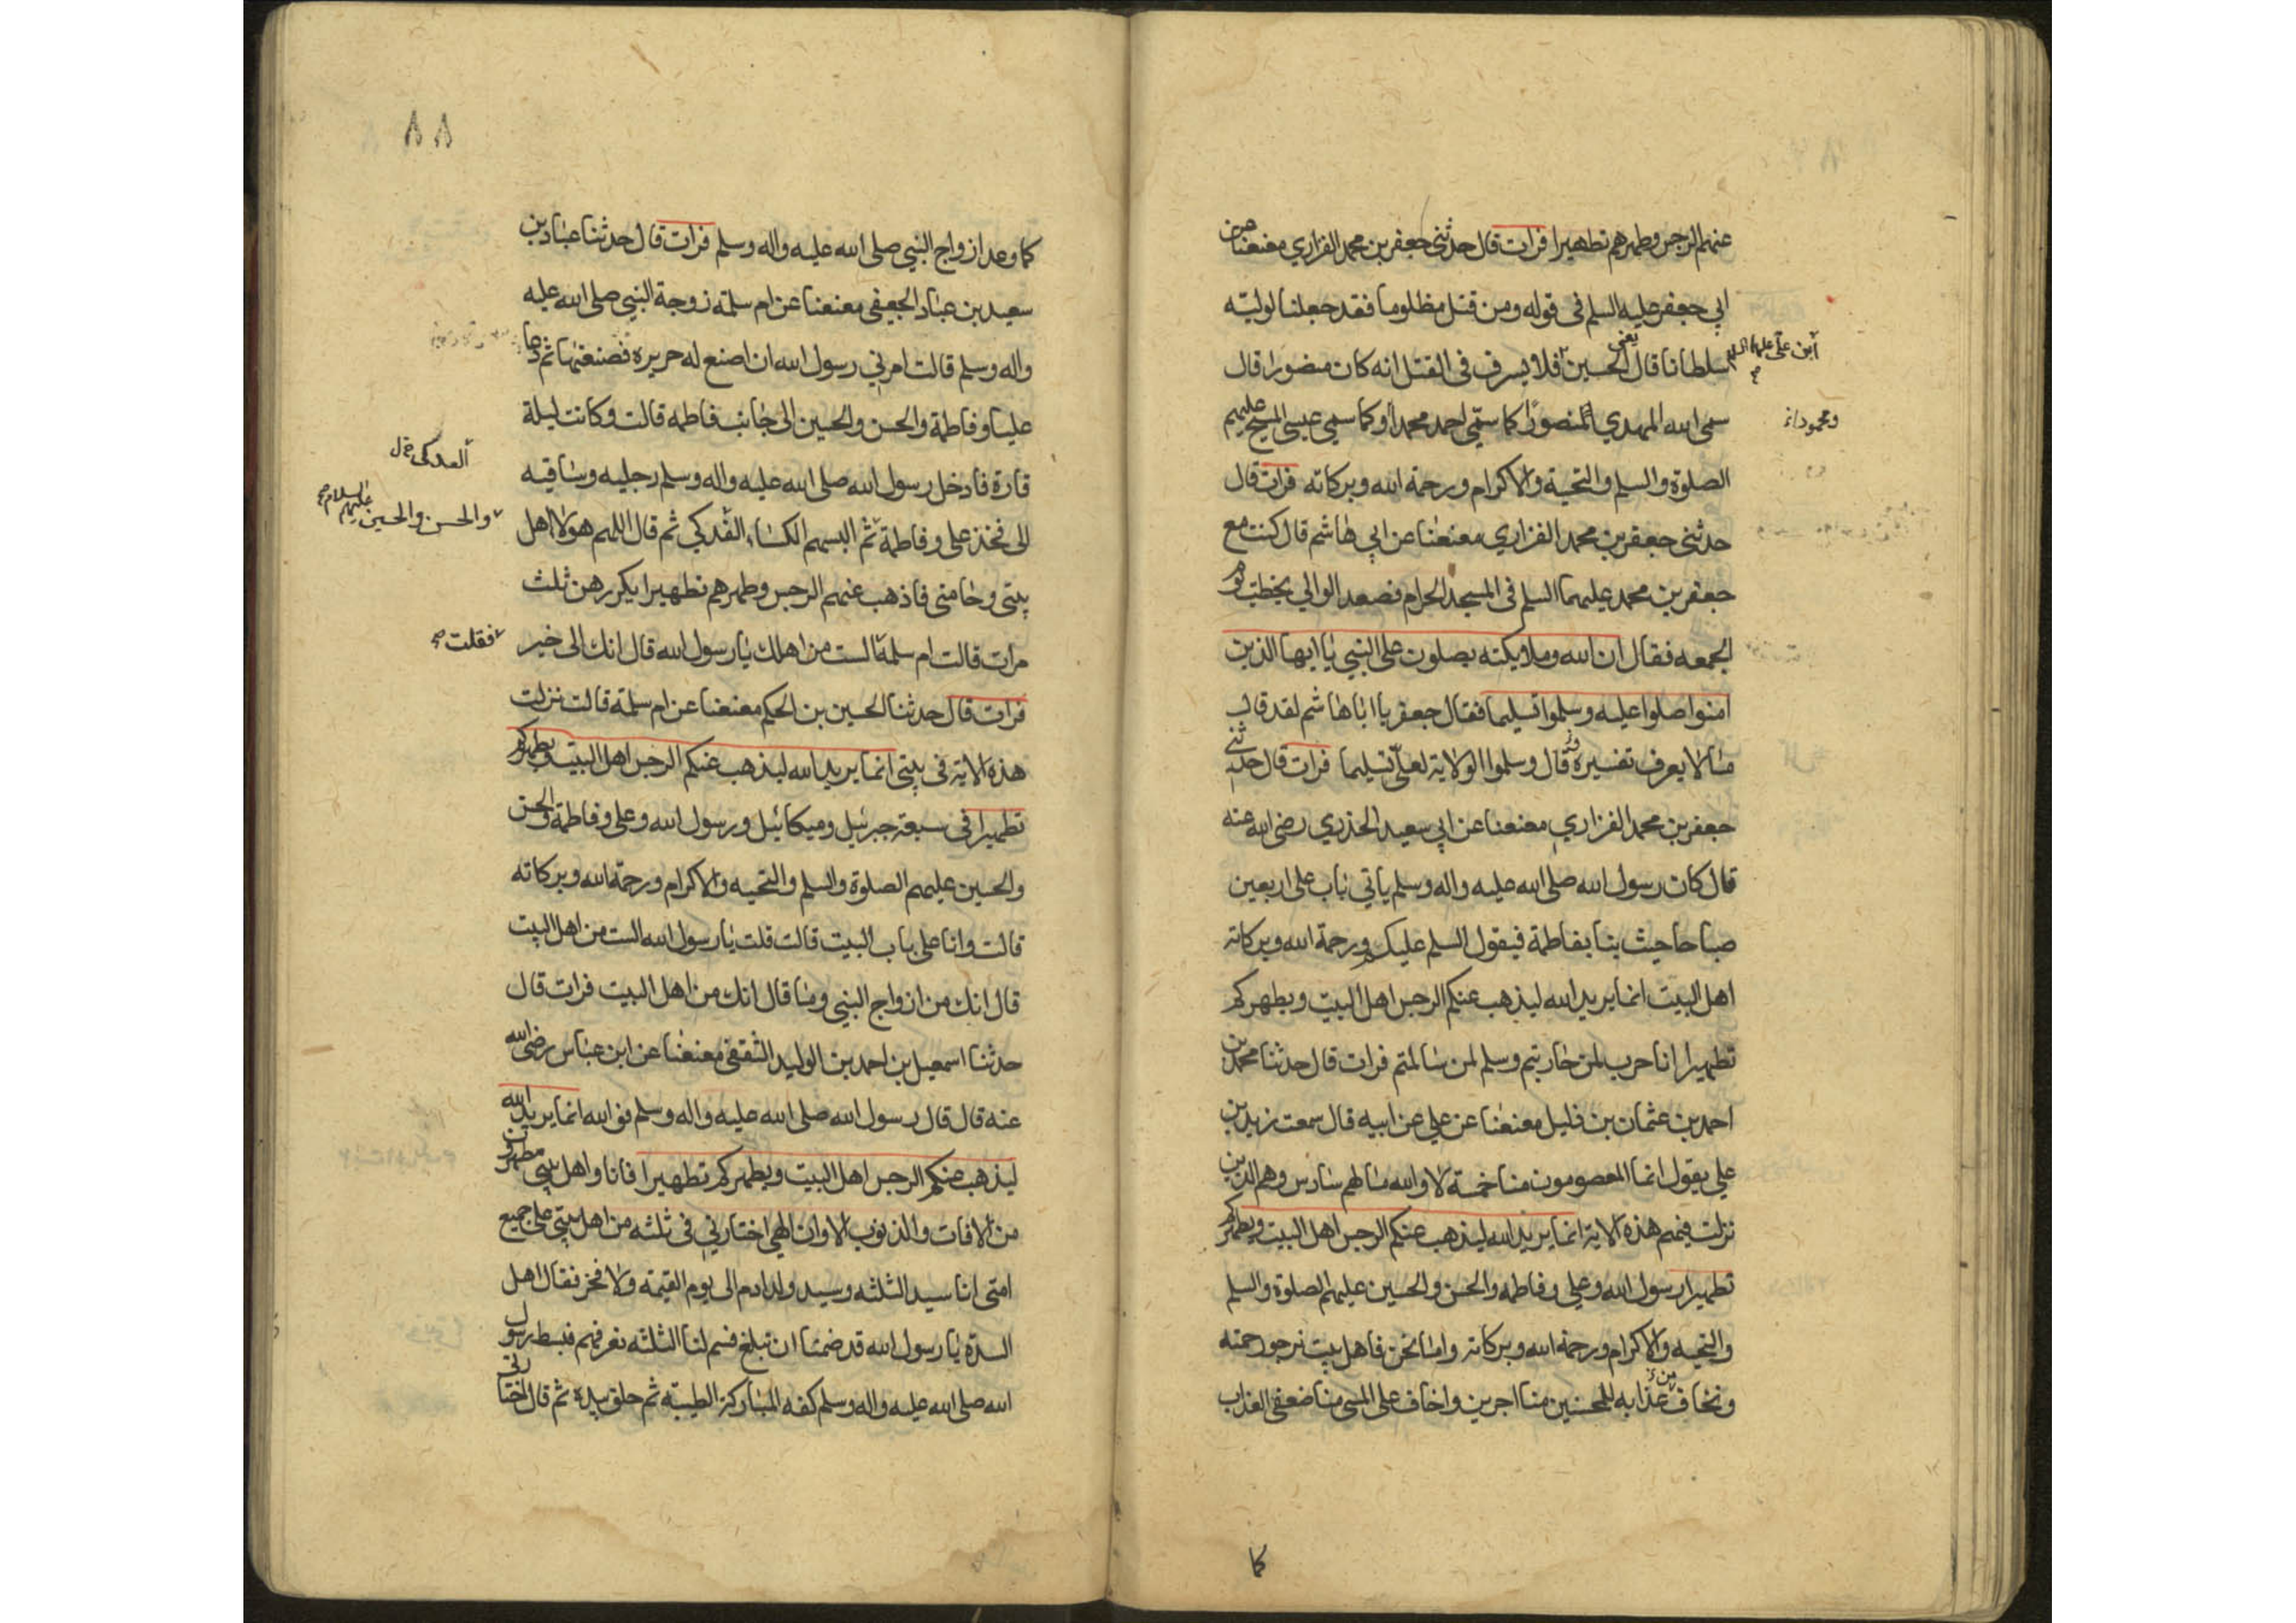 عنهم الرجس وطهرهم تطهيرا فرات قال حدثنى جعفر بن محمد الفزاري معنعنا عن
ابي جعفر عليه السلم فى قوله ومن قتل مظلوما فقد جعلنا لوليه
سلطانا قال يعني الحسين فلا يسرف فى القتل انه كان منصورا قال
ابن علي عليهما السلم صح
سمى الله المهدي المنصور كما سمي احمد محمدا وكما سمي عيسى المسيح عليهم
ومحمودا
الصلوة والسلم والتحية والاكرام ورحمة الله وبركاته فرات قال
حدثنى جعفر بن محمد الفزاري معنعنا عن ابي هاشم قال كنت مع
جعفر بن محمد عليهما السلم فى المسجد الحرام فصعد الوالي يخطب يوم
الجمعه فقال ان الله وملايكته يصلون على النبي يا ايها الذين
امنوا صلوا عليه وسلموا تسليما فقال جعفر يا ابا هاشم لقد قال
ما لا يعرف تفسيره قال وسلموا الولاية لعلي تسليما فرات قال حدثنى
جعفر بن محمد الفزاري معنعنا عن ابي سعيد الخدري رضى الله عنه
قال كان رسول الله صلى الله عليه واله وسلم ياتي باب على اربعين
صباحا حيث بنا بفاطمة فيقول السلم عليكم ورحمة الله وبركاته
اهل البيت انما يريد الله ليذهب عنكم الرجس اهل البيت ويطهركم
تطهيرا انا حرب لمن حاربتم وسلم لمن سالمتم فرات قال حدثنا محمد بن
احمد بن عثمان بن ذليل معنعنا عن علي عن ابيه قال سمعت زيد بن
علي يقول انما المعصومون منا خمسة لا والله ما لهم سادس وهم الذين
نزلت فيهم هذه الاية انما يريد الله ليذهب عنكم الرجس اهل البيت ويطهركم
تطهيرا رسول الله وعلي وفاطمه والحسن والحسين عليهم الصلوة والسلم
والتحيه والاكرام ورحمة الله وبركاته واما نحن فاهل بيت نرجو رحمته
ونخاف من عذابه للمحسنين منا اجرين واخاف على المسى منا ضعفى العذاب
كما
٨٨
كما وعد ازواج النبي صلى الله عليه واله وسلم فرات قال حدثنا عباد بن
سعيد بن عباد الجعفى معنعنا عن ام سلمة زوجة النبي صلى الله عليه
واله وسلم قالت امرني رسول الله ان اصنع له حريره فصنعتها ثم دعا
عليا وفاطمة والحسن والحسين الى جانب فاطمه قالت وكانت ليلة
قارة فادخل رسول الله صلى الله عليه واله وسلم رجليه وساقيه
الى فخذ على وفاطمة ثم البسهم الكساء الفدكي ثم قال اللهم هولاء اهل
والحسن والحسين عليهم السلام صح
بيتى وخامتى فاذهب عنهم الرجس وطهرهم تطهيرا يكررهن ثلث
مرات قالت ام سلمة الست من اهلك يا رسول الله قال انك الى خير
فقلت صح
فرات قال حدثنا الحسين بن الحكم معنعنا عن ام سلمة قالت نزلت
هذه الاية فى بيتى انما يريد الله ليذهب عنكم الرجس اهل البيت ويطهركم
تطهيرا فى سبعة جبرئيل وميكائيل ورسول الله وعلي وفاطمة والحسن
والحسين عليهم الصلوة والسلم والتحيه والاكرام ورحمة الله وبركاته
قالت وانا على باب البيت قالت قلت يا رسول الله الست من اهل البيت
قال انك من ازواج النبي وما قال انك من اهل البيت فرات قال
حدثنا اسمعيل بن احمد بن الوليد الثقفى معنعنا عن ابن عباس رضى الله
عنه قال قال رسول الله صلى الله عليه واله وسلم انما يريد الله
ليذهب عنكم الرجس اهل البيت ويطهركم تطهيرا فانا واهل بيتي مطهرون
من الافات والذنوب الا وان الهي اختارني فى ثلثه من اهل بيتي على جميع
امتى انا سيد الثلثه وسيد ولد ادم الى يوم القيمة ولا فخر فقال اهل
السدة يا رسول الله قد ضمنا ان نبلغ فسم لنا الثلثه نعرفهم فبسط رسول
الله صلى الله عليه واله وسلم كفه المباركة الطيبة ثم حلق بيده ثم قال اختارني